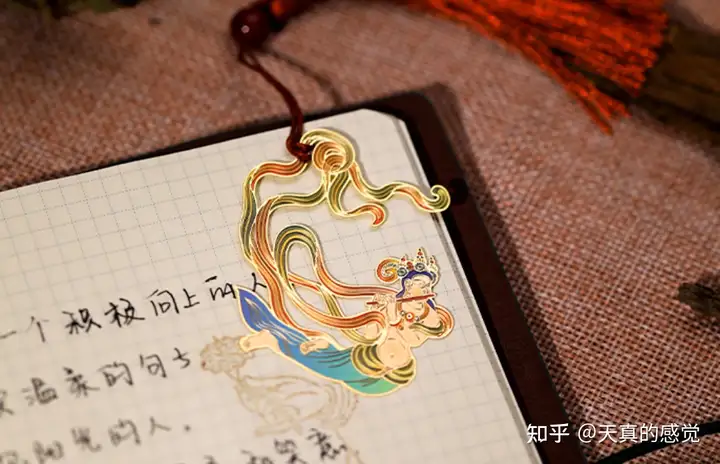 一个积极向上的人
温柔的句子
阳光的人.
知乎 @天真的感觉